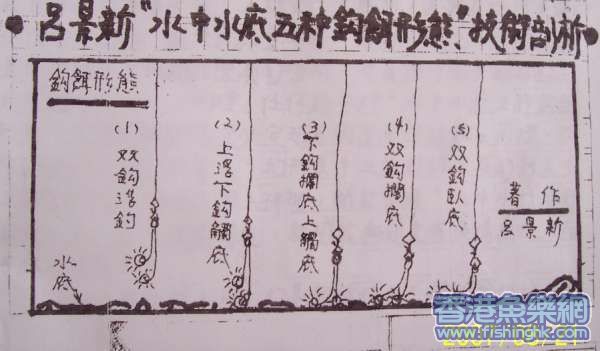 呂景新"水中水底五种鈎餌形態"技術剖析
鈎餌形態
(1) 双鈎浮釣
(2) 上浮下鈎觸底
(3) 下鈎擱底上觸底
(4) 双鈎擱底
(5) 双鈎臥底
著作
呂景新
水底
香港魚樂網
www.fishinghk.com